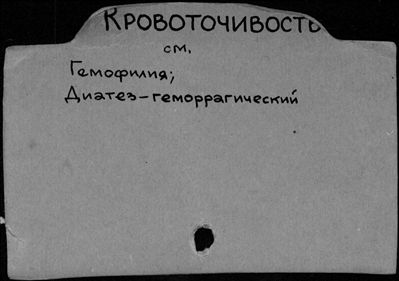 КРОВОТОЧИВОСТЬ
см.
Гемофилия;
Диатез-геморрагический